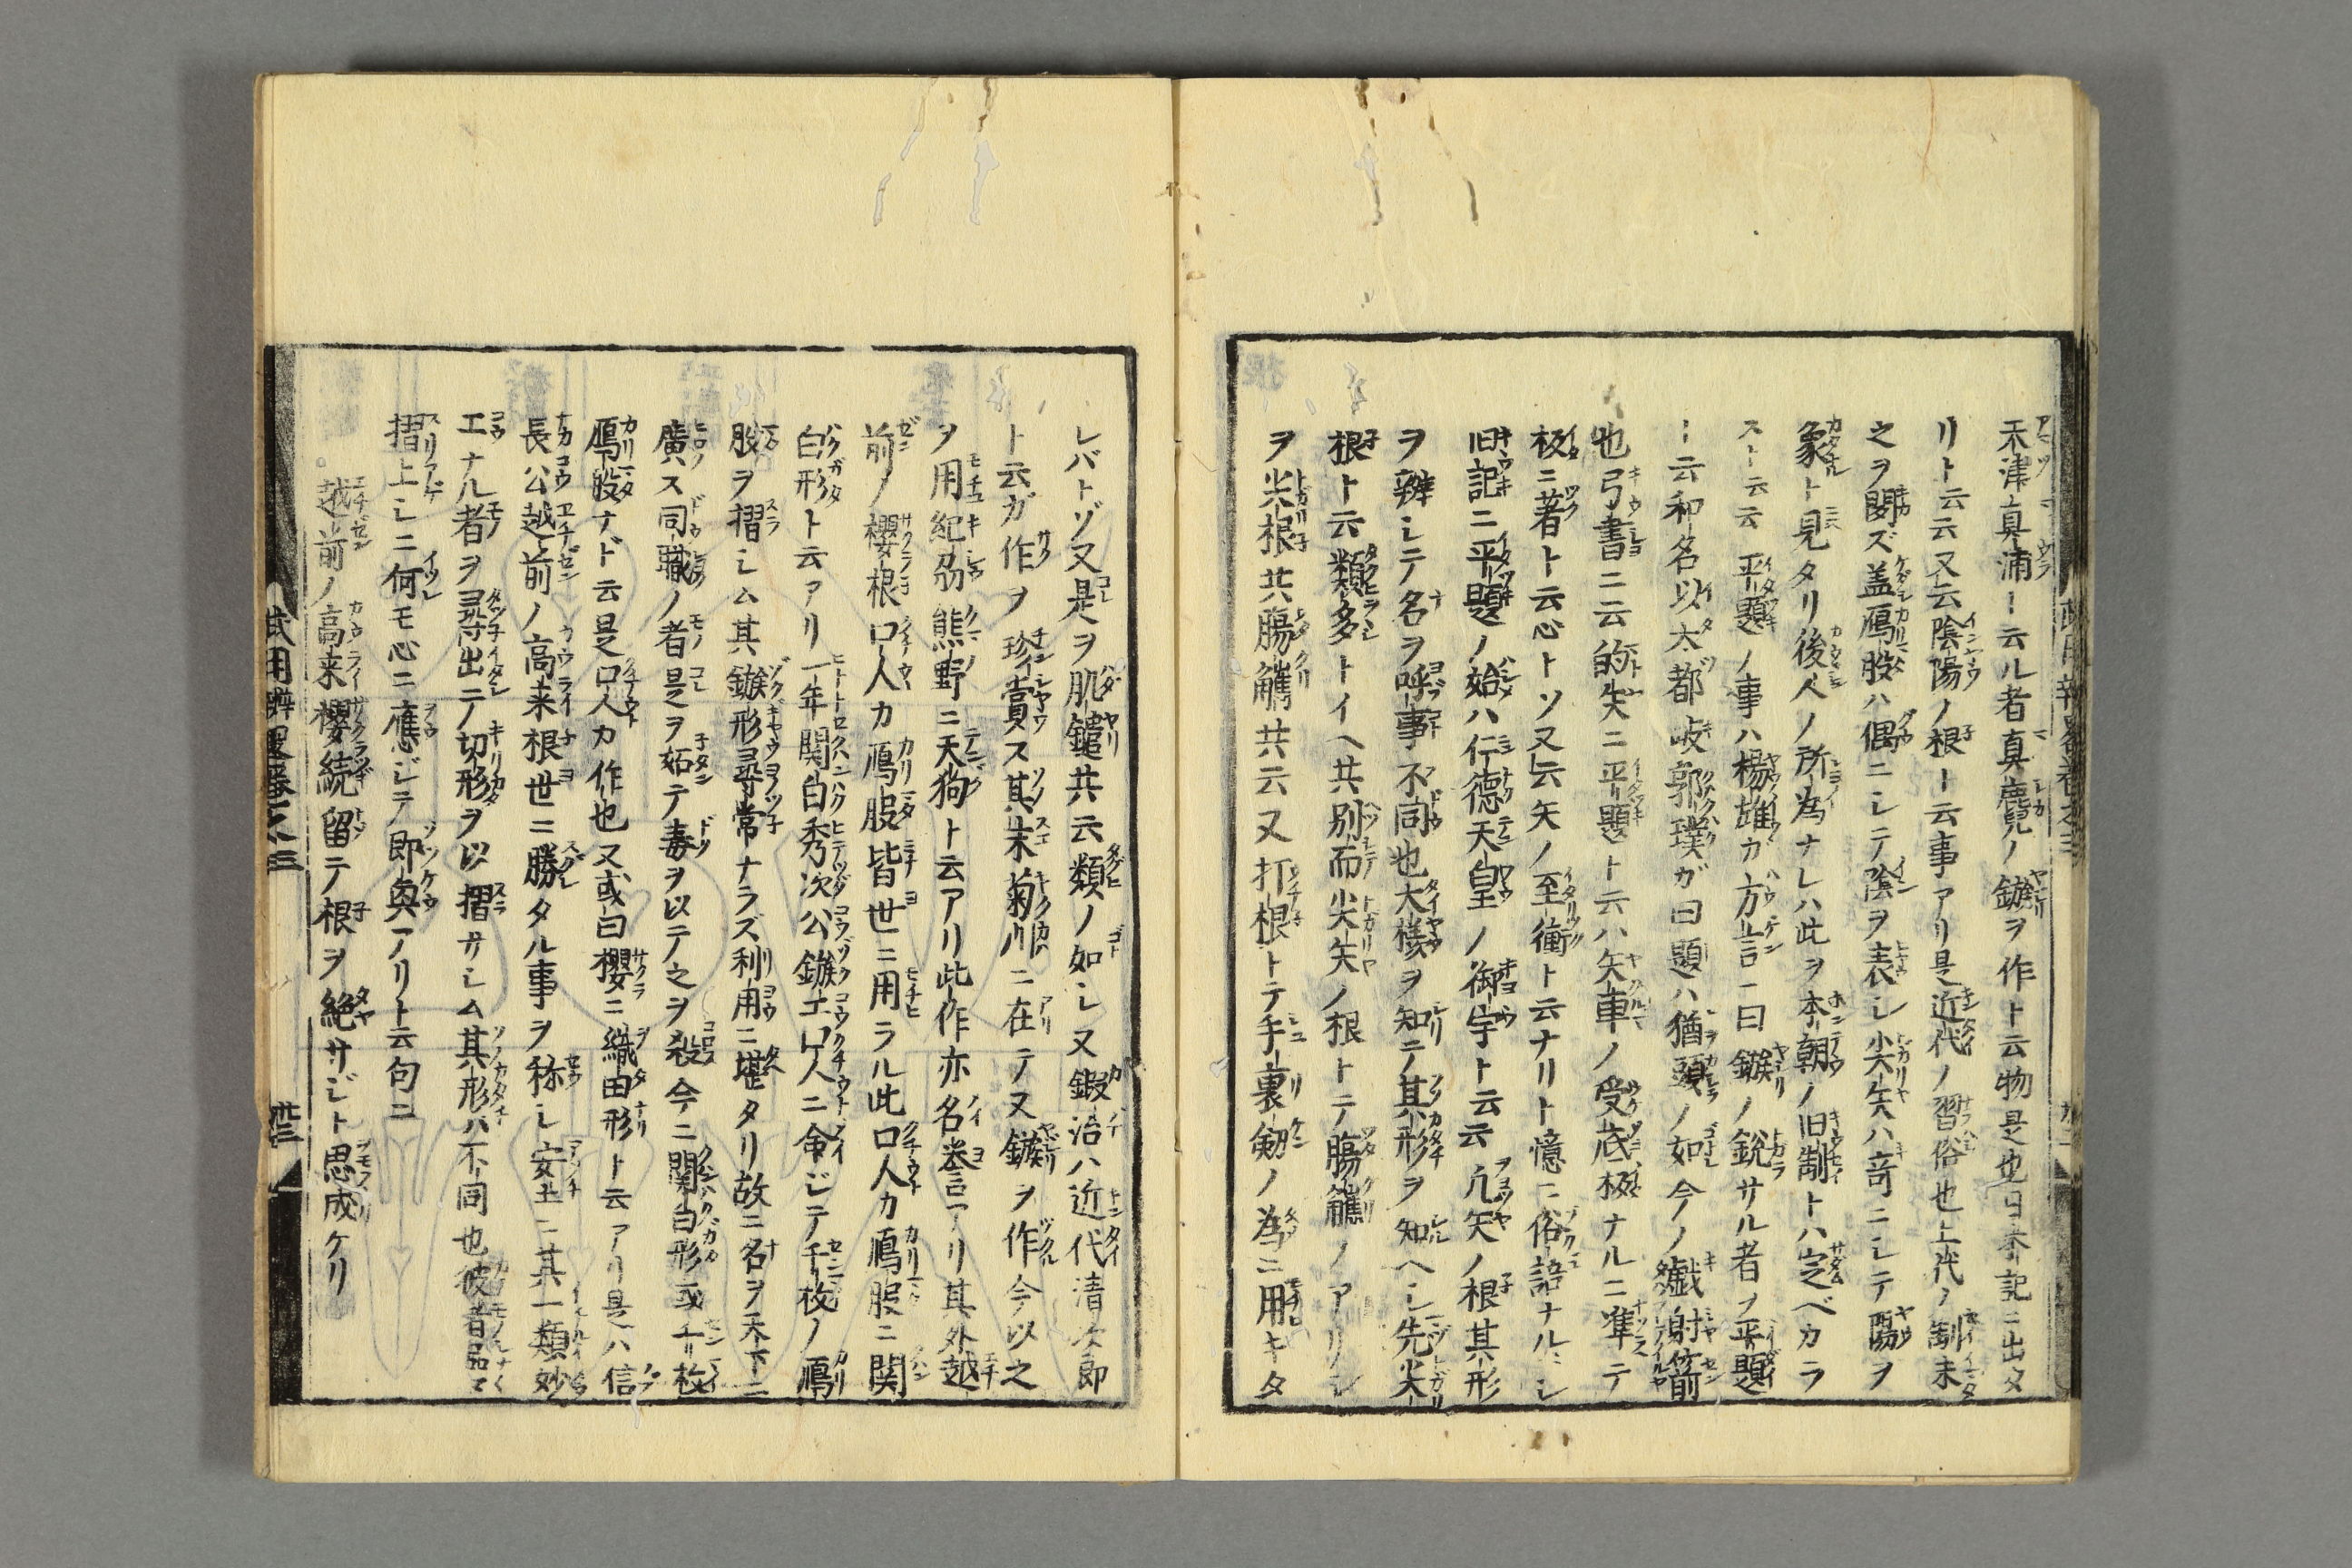 天津真浦ト云ル者真麑ノ鏃ヲ作ト云物是也日本記ニ出タ
リト云云又云陰陽ノ根ト云事アリ是近代ノ習俗也上代ノ制未
之ヲ聞ズ盖鴈股ハ偶ニシテ陰ヲ表シ尖矢ハ奇ニシテ陽ヲ
象ト見タリ後人ノ所為ナレハ此ヲ本朝ノ旧制トハ定ベカラ
スト云云 平題ノ事ハ楊雄カ方言ニ曰鏃ノ鋭サル者ヲ平題
ト云和名以太都岐郭璞ガ曰題ハ猶頭ノ如今ノ戯射箭
也弓書ニ云的矢ニ平題ト云ハ矢車ノ受底极ナルニ準テ
极ニ著ト云心トソ又云矢ノ至衝ト云ナリト憶ニ俗語ナルヘシ
旧記ニ平題ノ始ハ仁德天皇ノ御宇ト云云 凢矢ノ根其形
ヲ辨シテ名ヲ呼事不同也大様ヲ知テ其形ヲ知ヘシ先尖
根ト云類多トイヘ共別而尖矢ノ根トテ膓觹ノアリシ
ヲ尖根共膓觹共云又打根トテ手裏剱ノ為ニ用キタ
レバトゾ又是ヲ肌鑓共云類ノ如シ又鍜冶ハ近代清次郎
ト云ガ作ヲ珍賞ス其末菊川ニ在テ又鏃ヲ作今以之
ヲ用紀刕熊野ニ天狗ト云アリ此作亦名誉アリ其外越
前ノ櫻根口人カ鴈股皆世ニ用ラル此口人カ鴈股ニ関
白形ト云アリ一年関白秀次公鏃工口人ニ命ジテ千枚ノ鴈
股ヲ摺シム其鏃形尋常ナラズ利用ニ堪タリ故ニ名ヲ天下ニ
廣ス同職ノ者是ヲ妬テ毒ヲ以テ之ヲ殺今ニ関白形或千枚
鴈股ナド云是口人カ作也又或曰櫻ニ織田形ト云アリ是ハ信
長公越前ノ高来根世ニ勝タル事ヲ称シ安土ニ其一類妙
工ナル者ヲ尋出テ切形ヲ以摺サシム其形ハ不同也彼者品々
摺上シニ何モ心ニ應ジテ即與アリト云句ニ
越前ノ高来櫻続留テ根ヲ絶サジト思成ケリ
武用辨畧巻之三 卅三